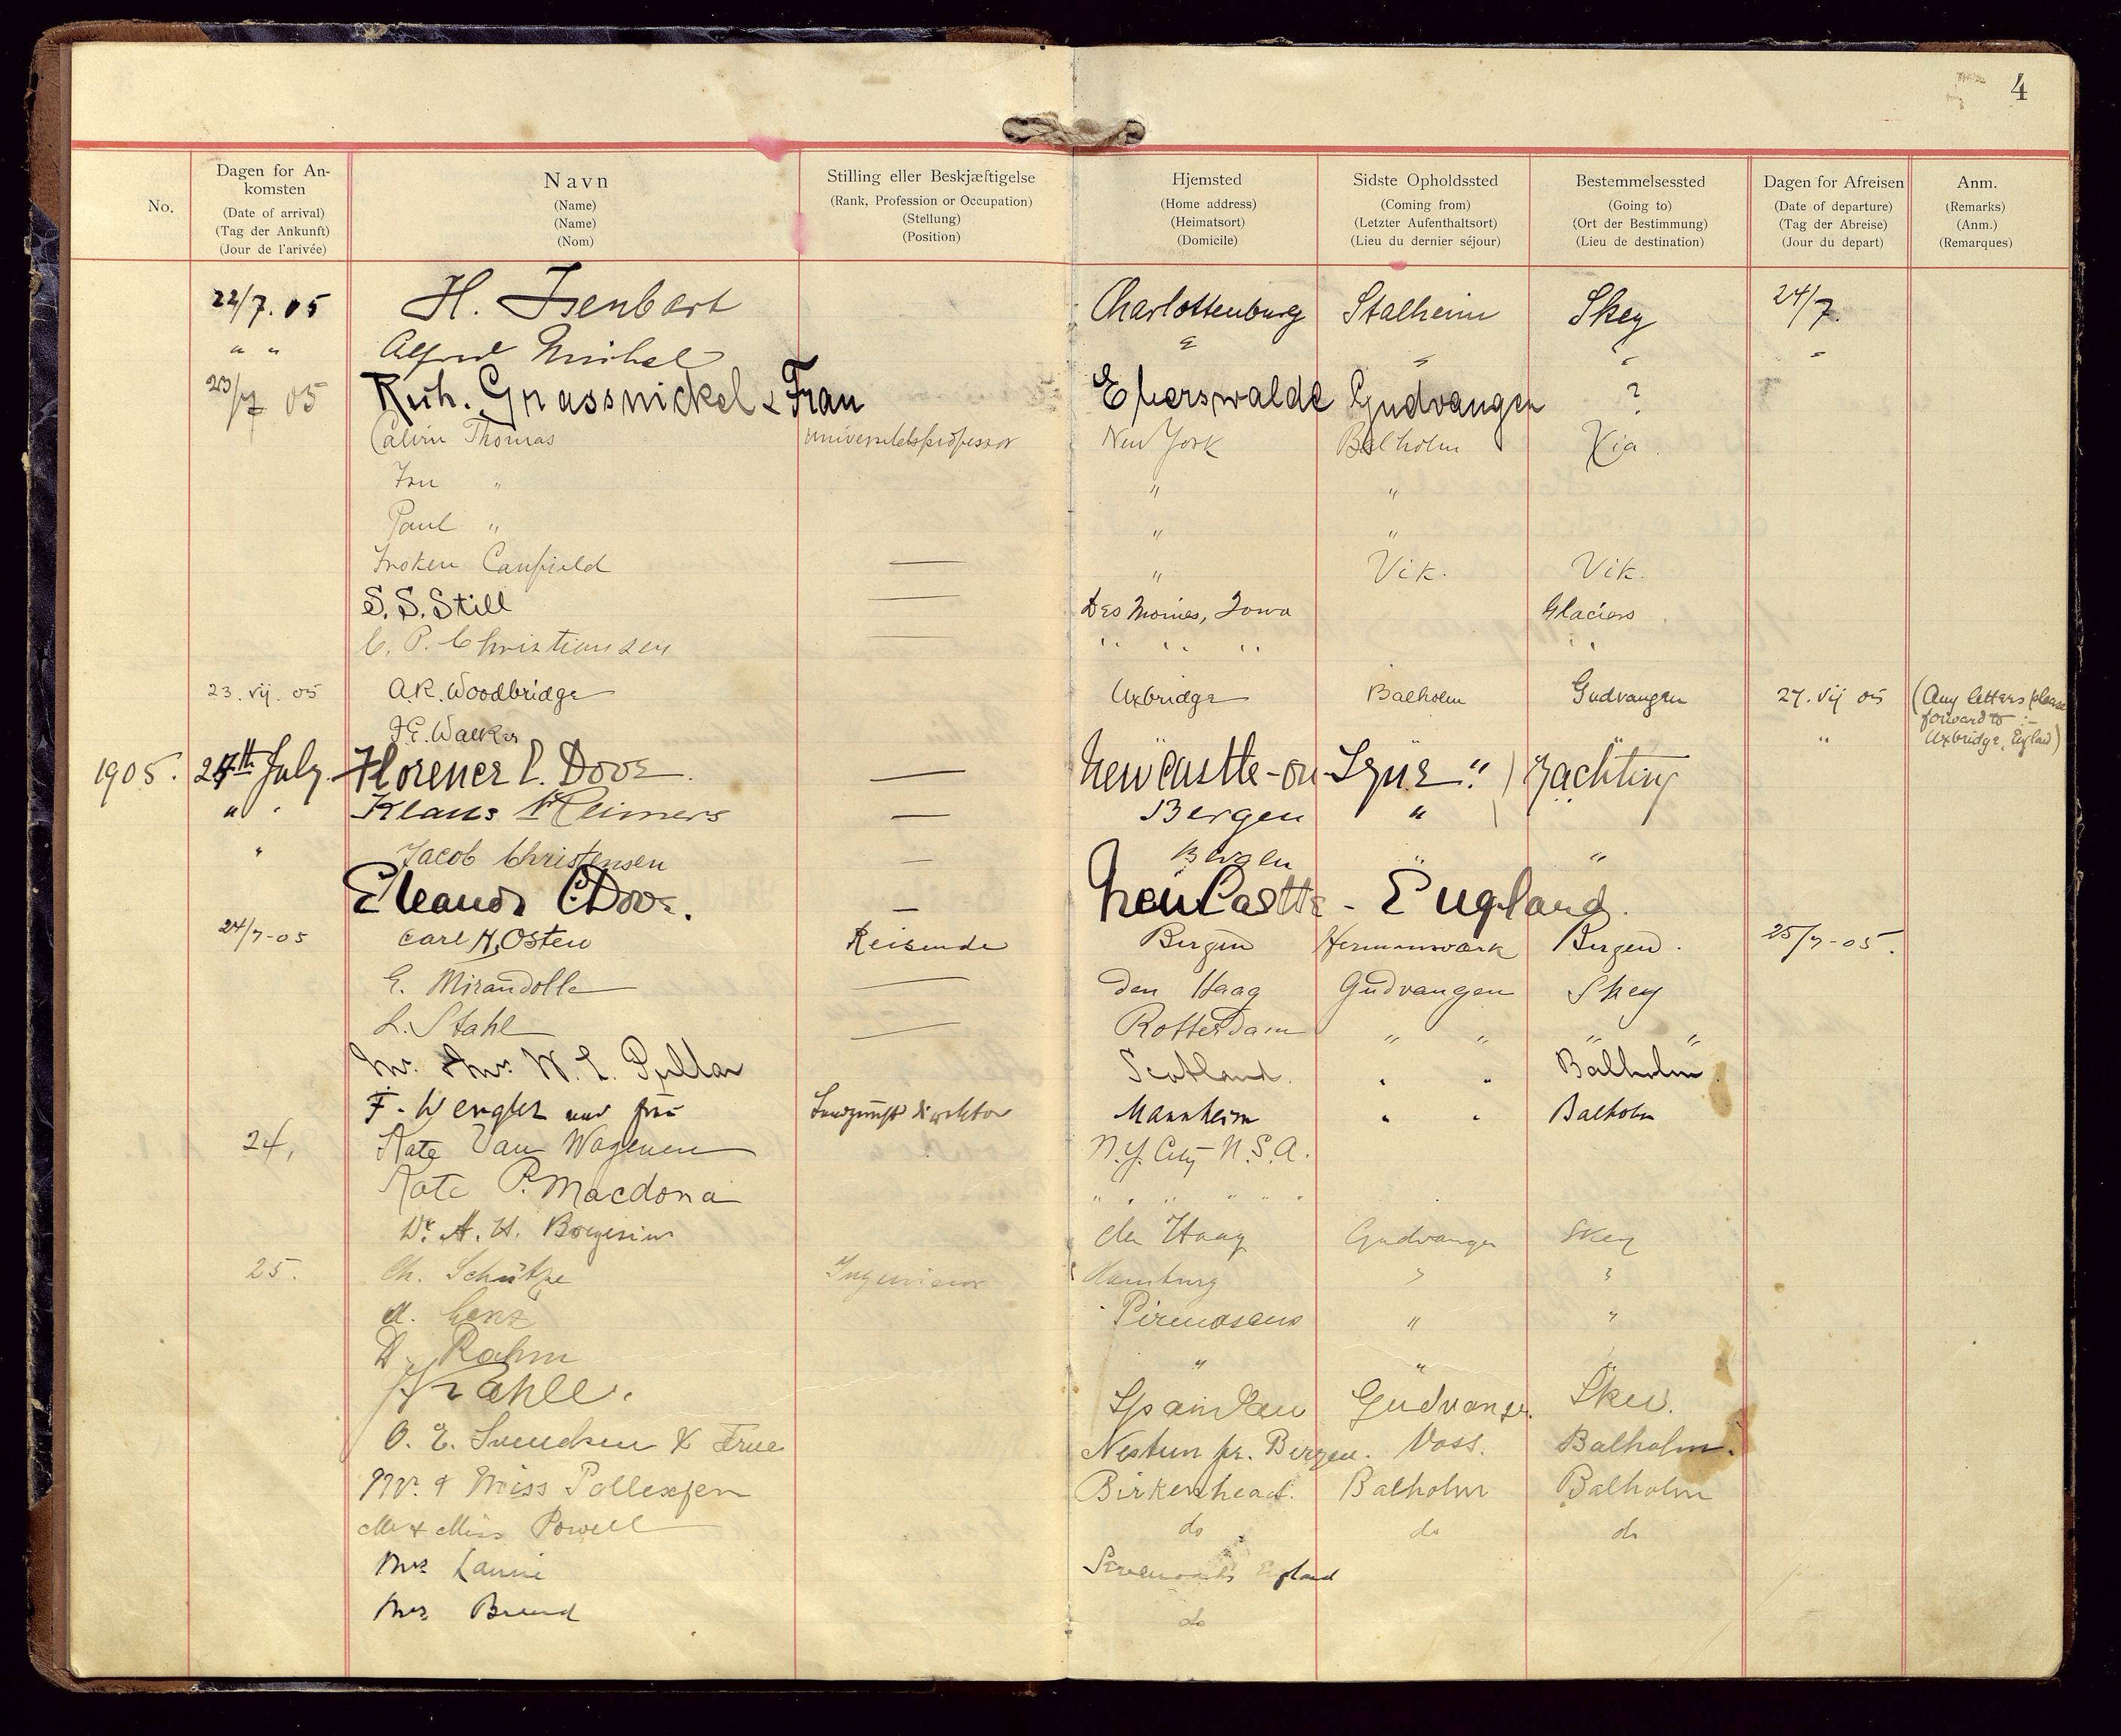 4
No.
Dagen for An-
komsten
(Date of arrival)
(Tag der Ankunft)
(Jour de l'arivée)
Navn
(Name)
(Name)
(Nom)
Stilling eller Beskjæftigelse
(Rank, Profession or Occupation)
(Stellung)
(Position)
Hjemsted
(Home address)
(Heimatsort)
(Domicile)
Sidste Opholdssted
(Coming from)
(Letzter Aufenthaltsort)
(Lieu du dernier séjour)
Bestemmelsessted
(Going to)
(Ort der Bestimmung)
(Lieu de destination)
Dagen for Afreisen
(Date of departure)
(Tag der Abreise)
(Jour du depart)
Anm.
(Remarks)
(Anm.)
(Remarques)
22/7. 05 H. Isenbart Charlottenburg Stalheim Skey 24/7.
" " Alfred " " " "
23/7 05 Grassnickel & Frau Eberswalde Gudvangen ?
Calvin Thomas universitetsprofessor New York Balholm
Fru " " "
Paul " " "
Froken Canfield — " Vik. Vik.
S. S. Still — Des Moines, Iowa Glaciers
C. P. Christiansen — " " " "
23. vij. 05 A.R. Woodbridge Uxbridge Balholm Gudvangen 27. vij 05 (Any letters please
forward to :-
Uxbridge, England)
Walker "
1905. 24th July. Dove. — New Castle-on Tyne " ) Yachting
" " Klaus Reimers — Bergen "
" Jacob Christensen — Bergen " "
Eleanor C. Dove. — New Castle - England.
24/7-05 Carl H. Osten Reisende Bergen Hermansværk Bergen. 25/7-05.
E. Mirandolle — den Haag Gudvangen Skey
L. Stahl — Rotterdam " " " "
Mr. & Mrs. W. L. Pullar Scotland. " " Balholm
F. Wengler und frau Mannheim " " Balholm
24, Kate Van Wagenen N.Y. City U.S.A.
Kate P. Macdona " " " " " "
Dr. A. H. Borgesius den Haag Gudvangen Skey
25. Ch. Schütze Ingenieur Hamburg " "
A. Lenz Pirmasens " "
D. Rahm " " "
Spandau Gudvangen Skei.
O. E. Svendsen & Frue Nestun pr. Bergen. Voss. Balholm.
Mr. & Miss Pollexfen Birkenhead. Balholm Balholm
Mr & Miss Powell do do do
Mrs Sevenoaks England
Mrs do